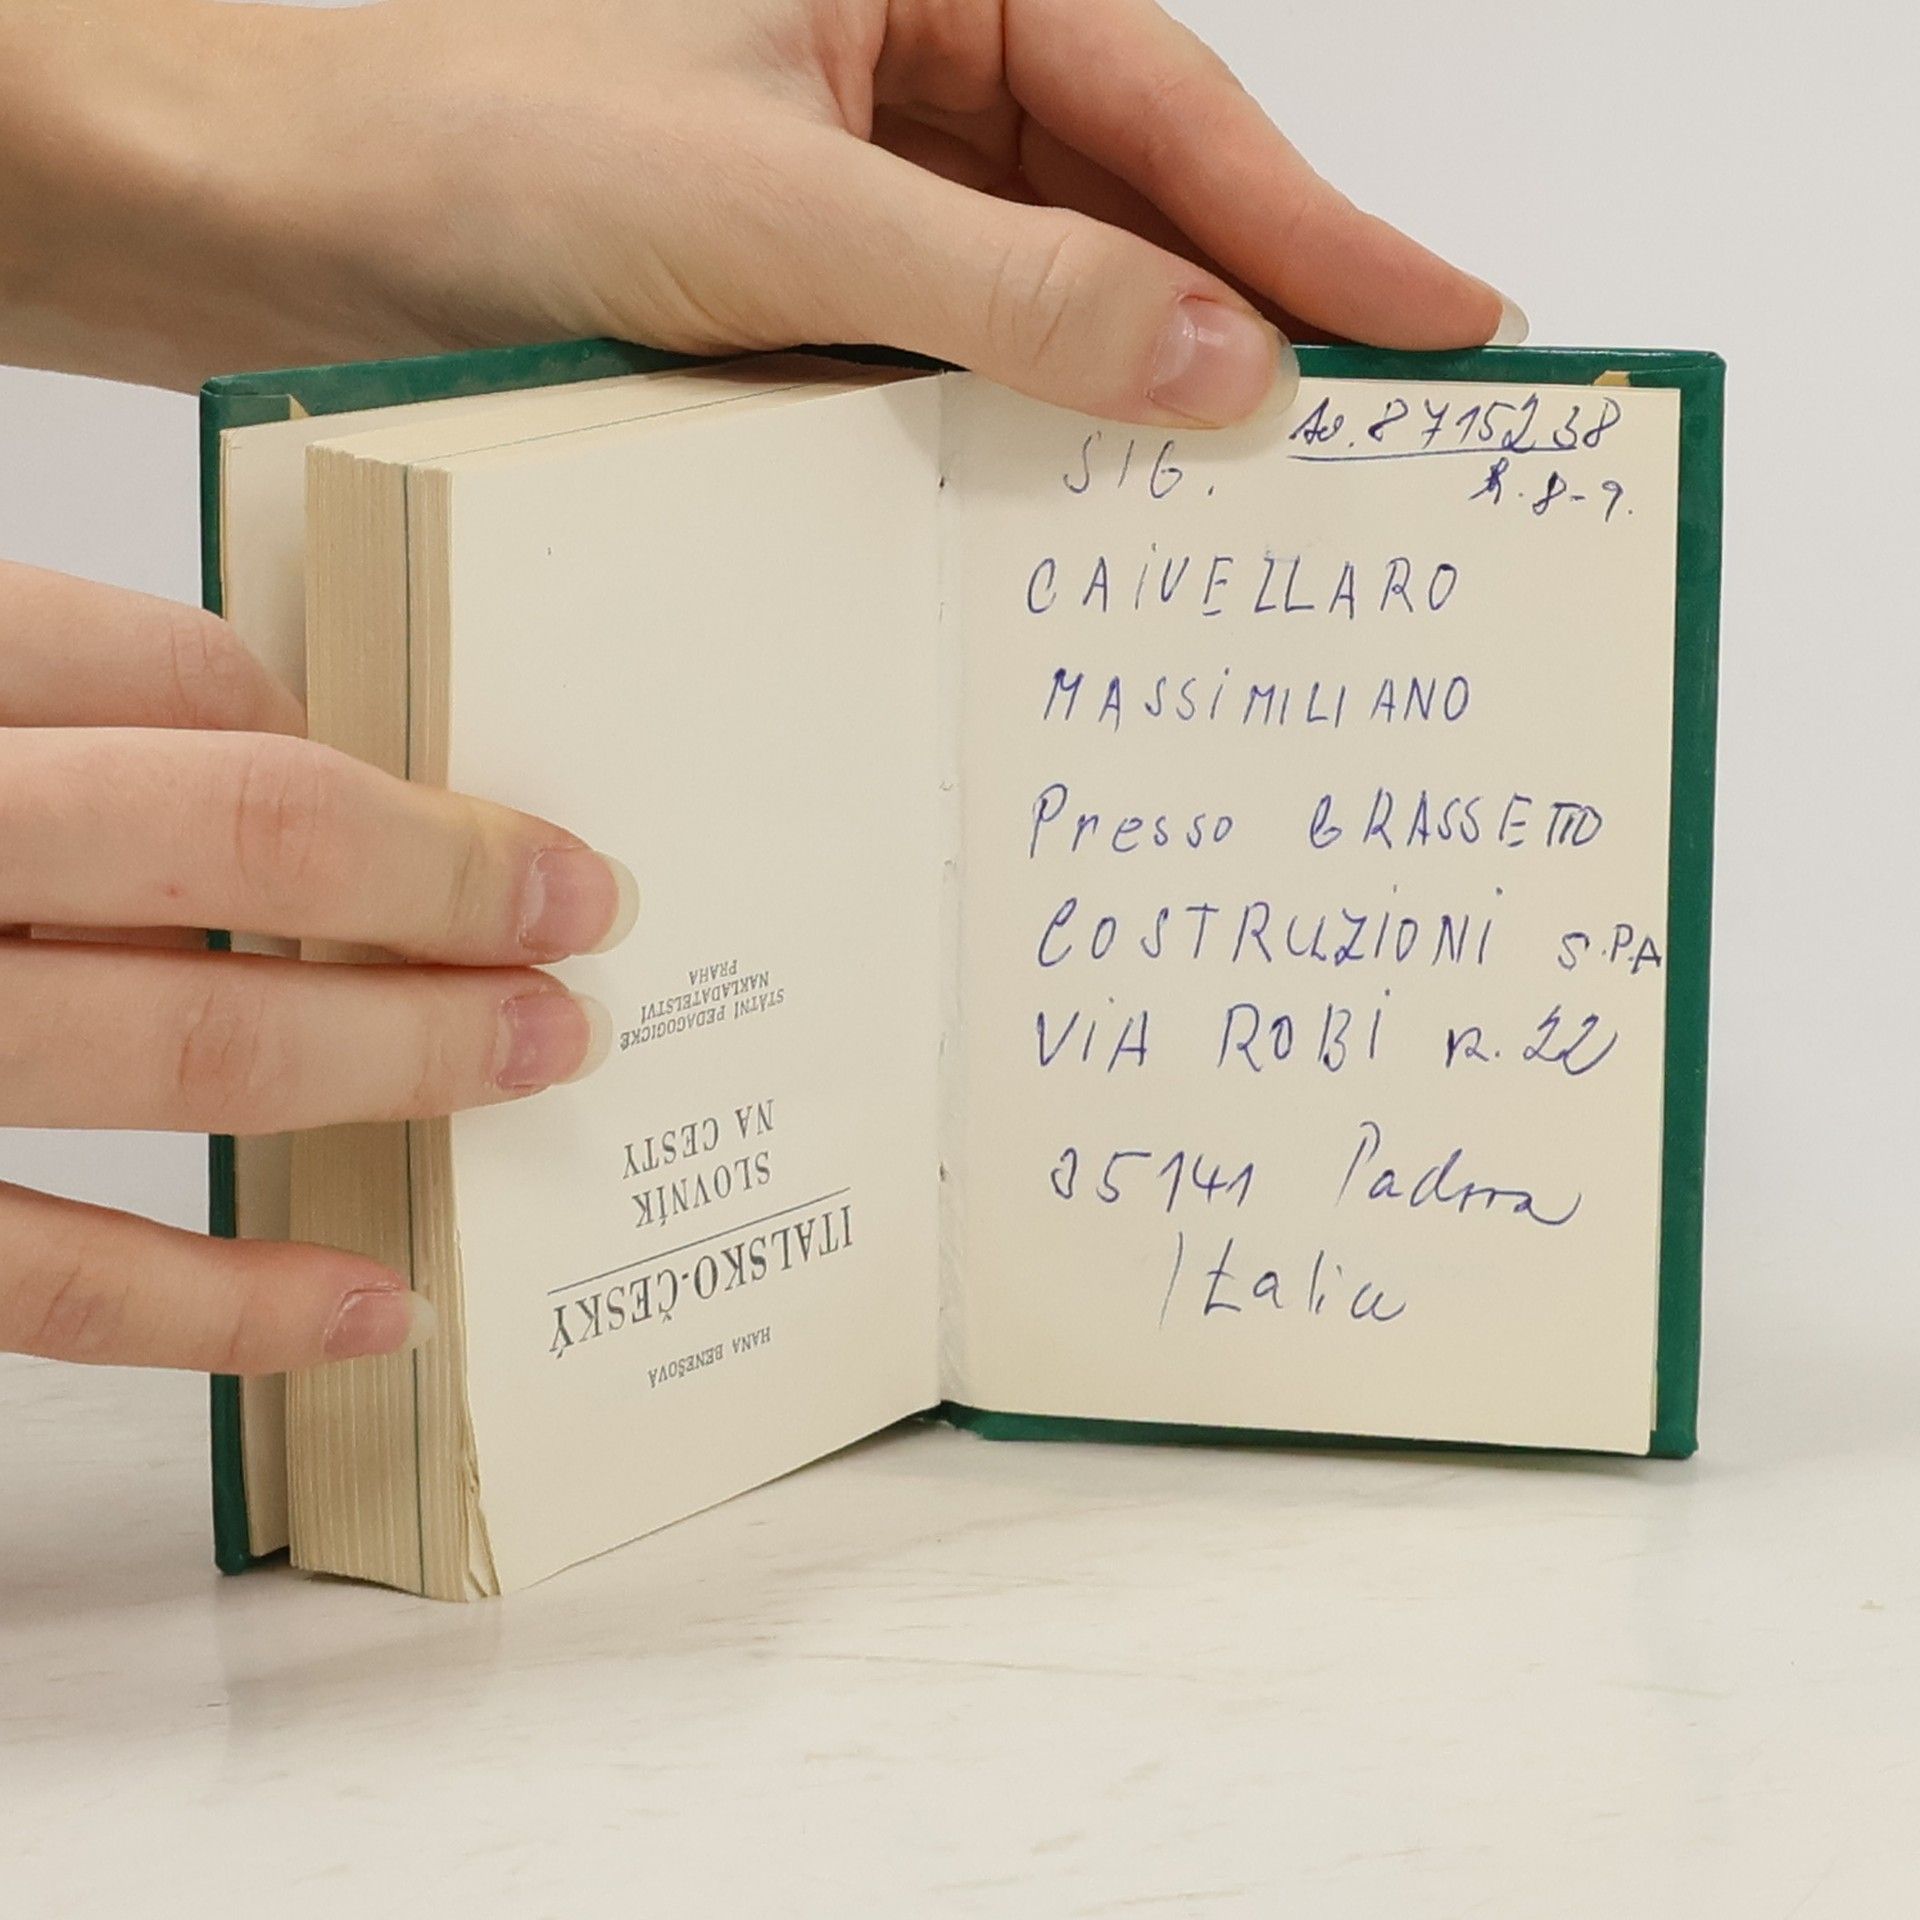 HANA BENEŠOVÁ
ITALSKO-ČESKÝ
SLOVNÍK
NA CESTY
STÁTNÍ PEDAGOGICKÉ
NAKLADATELSTVÍ
PRAHA
8715238
8-9.
SIG.
CAIVEZLARO
MASSiMILIANO
Presso GRASSETTO
COSTRUZIONI S.P.A
ViA ROBI n. 22
35141 Padova
Italia